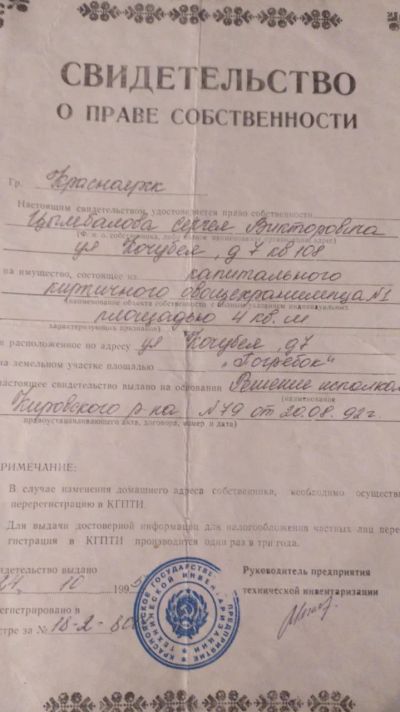 СВИДЕТЕЛЬСТВО
О ПРАВЕ СОБСТВЕННОСТИ
Гр. Красноярск
Настоящим свидетельством удостоверяется право собственности
Цымбалова Сергея Викторовича
(Ф. и. о. собственника, либо полное наименование организации адрес)
ул Кочубея, д 7 кв 108
на имущество, состоящее из капитального
кирпичного овощехранилища №1
(наименование объекта собственности с полными указанием индивидуальных
площадью 4 кв. м
характеризующих признаков)
расположенное по адресу ул Кочубея, д7
на земельном участке площадью „Погребок"
настоящее свидетельство выдано на основании Решение исполком
(наименование
Кировского р-на №79 от 20.08.92г.
правоустанавливающего акта, договора, номер и дата)
РИМЕЧАНИЕ:
В случае изменения домашнего адреса собственника, необходимо осущест
перерегистрацию в КГПТИ.
Для выдачи достоверной информации для налогообложения частных лиц пере
гистрация в КГПТИ производится один раз в три года.
идетельство выдано
10 199
егистрировано в
стре за № 18-2-80
Руководитель предприятия
технической инвентаризации
КРАСНОЯРСКОЕ ГОСУДАРСТВЕ ПРЕДПРИЯТИЕ
ТЕХНИЧЕСКОЙ ИНВЕНТАРИЗАЦИИ